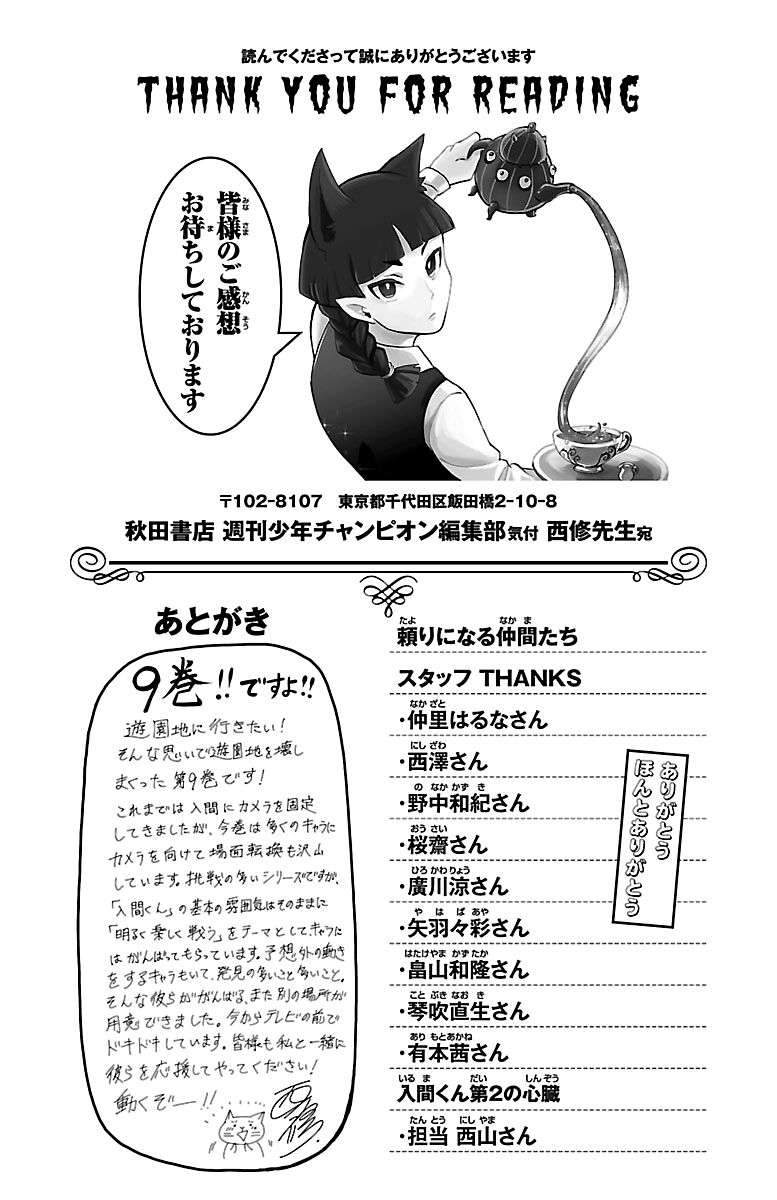 読んでくださって誠にありがとうございます
THANK YOU FOR READING
皆様のご感想
お待ちしております
〒102-8107　東京都千代田区飯田橋2-10-8
秋田書店 週刊少年チャンピオン編集部気付 西修先生宛
あとがき
9巻!!ですよ!!
遊園地に行きたい!
そんな思いで遊園地を壊し
まくった第9巻です!
これまでは入間にカメラを固定
してきましたが、今巻は多くのキャラに
カメラを向けて場面転換も沢山
しています。挑戦の多いシリーズですが、
「入間くん」の基本の雰囲気はそのままに
「明るく楽しく戦う」をテーマとしてキャラに
はがんばってもらっています。予想外の動き
をするキャラもいて、発見の多いこと多いこと。
そんな彼らががんばる、また別の場所が
用意できました。今からテレビの前で
ドキドキしています。皆様も私と一緒に
彼らを応援してやってください!
動くぞー!!
西修
頼りになる仲間たち
スタッフ THANKS
・仲里はるなさん
・西澤さん
・野中和紀さん
・桜齋さん
・廣川涼さん
・矢羽々彩さん
・畠山和隆さん
・琴吹直生さん
・有本茜さん
入間くん第2の心臓
・担当 西山さん
ありがとう
ほんとありがとう